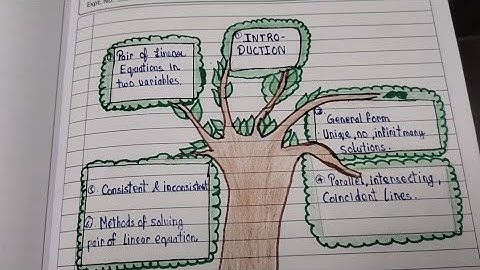 Expt. No.
① INTRO-
DUCTION
Pair of Linear
Equations in
two variables.
③ General form
Unique, no, infinit many
solutions.
④ Parallel, intersecting,
Coincident Lines.
⑤ Consistent & inconsistent
⑥ Methods of solving
pair of linear equation